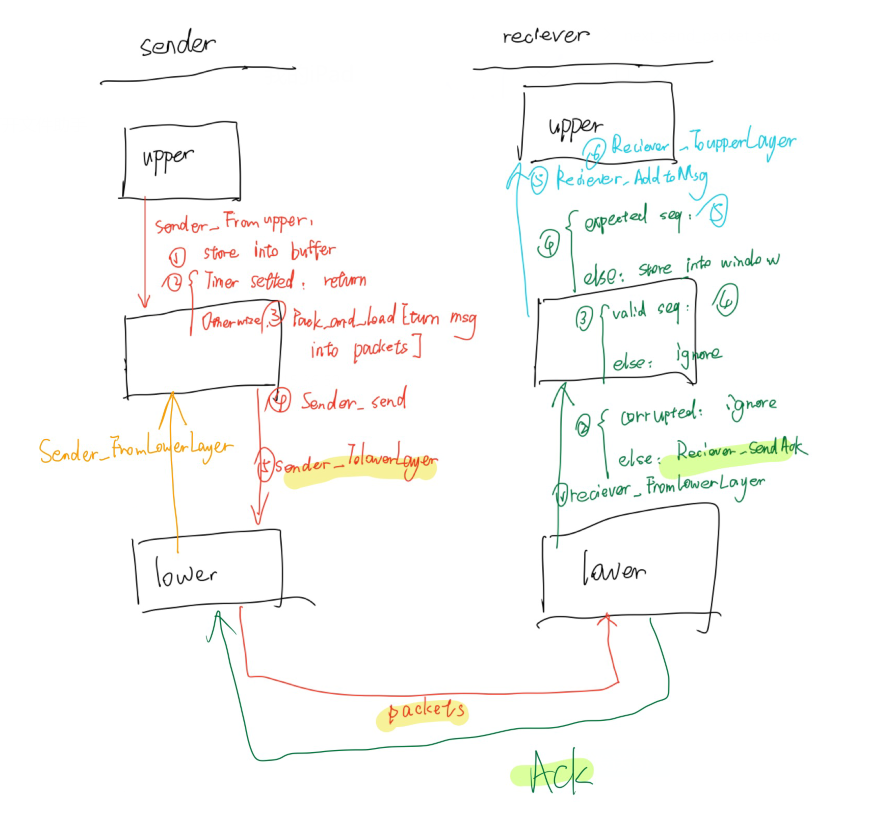 sender
upper
sender_From upper.
① store into buffer
② { Timer setted: return
Otherwise: ③ Pack_and_Load [turn msg
into packets]
④ Sender_send
Sender_FromLowerLayer
⑤ sender_ToLowerLayer
lower
reciever
upper
⑥ Reciever_ToupperLayer
⑤ Reciever_AddtoMsg
④ { expected seq: ⑤
else: store into window
③ { valid seq: ④
else: ignore
② { corrupted: ignore
else: Reciever_SendAck
① reciever_FromlowerLayer
lower
packets
Ack